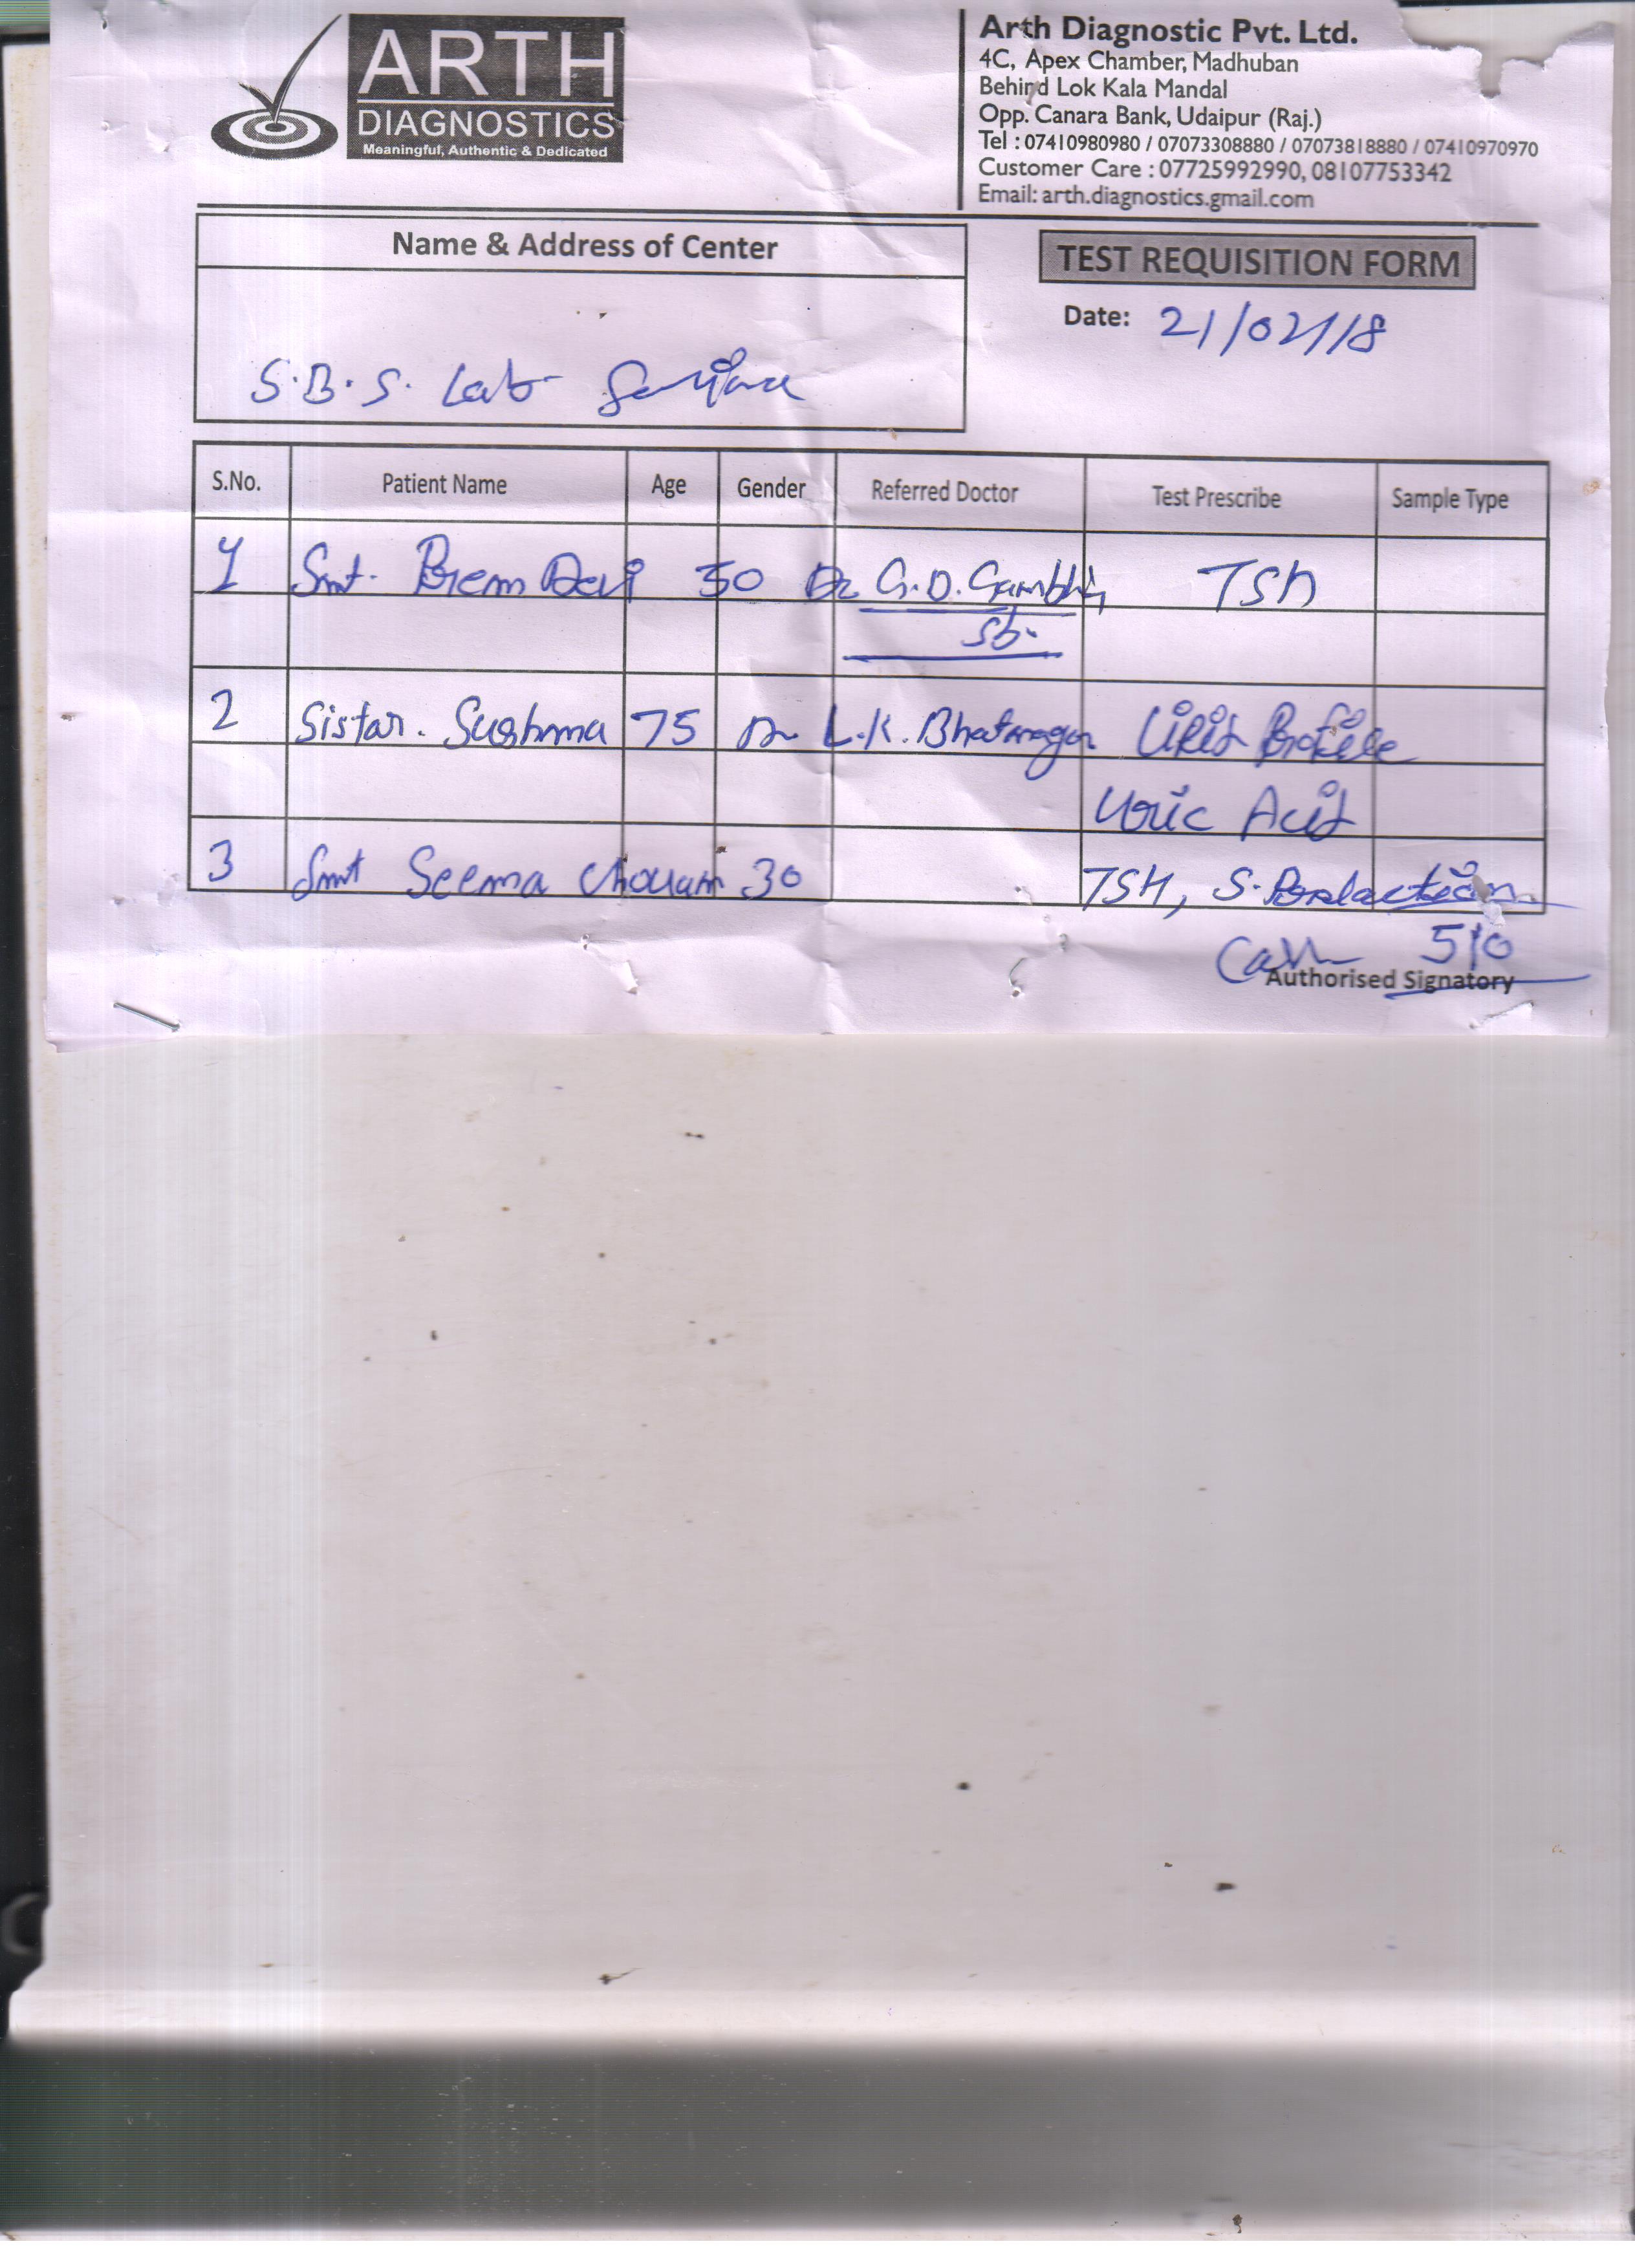 ARTH
DIAGNOSTICS
Meaningful, Authentic & Dedicated
Arth Diagnostic Pvt. Ltd.
4C, Apex Chamber, Madhuban
Behind Lok Kala Mandal
Opp. Canara Bank, Udaipur (Raj.)
Tel : 07410980980 / 07073308880 / 07073818880 / 07410970970
Customer Care : 07725992990, 08107753342
Email: arth.diagnostics.gmail.com
Name & Address of Center
TEST REQUISITION FORM
Date: 21/02/18
S.B.S. Lab
S.No. Patient Name Age Gender Referred Doctor Test Prescribe Sample Type
1 Smt. Prem Devi 50 Dr G.D. TSH
2 Sistar. Sushma 75 Dr L.K. Bhatnagar Lipid Profile
Uric Acid
3 Smt Seema Chouan 30 TSH, S. Prolaction
Cash 510
Authorised Signatory